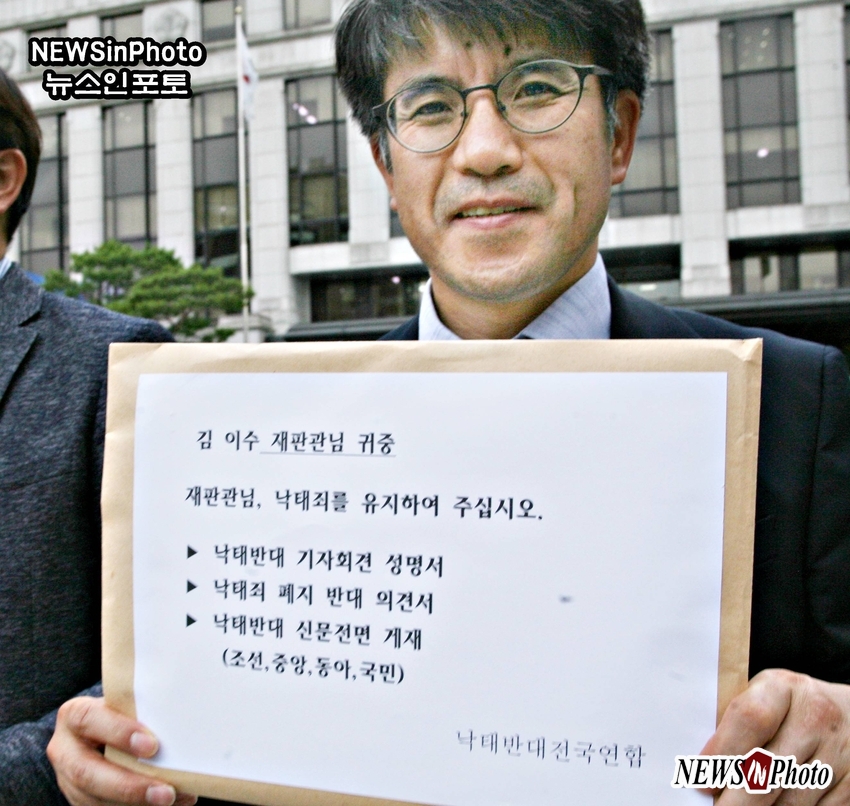 NEWSinPhoto
뉴스인포토
김 이수 재판관님 귀중
재판관님, 낙태죄를 유지하여 주십시오.
▶ 낙태반대 기자회견 성명서
▶ 낙태죄 폐지 반대 의견서
▶ 낙태반대 신문전면 게재
(조선,중앙,동아,국민)
낙태반대전국연합
NEWSINPhoto